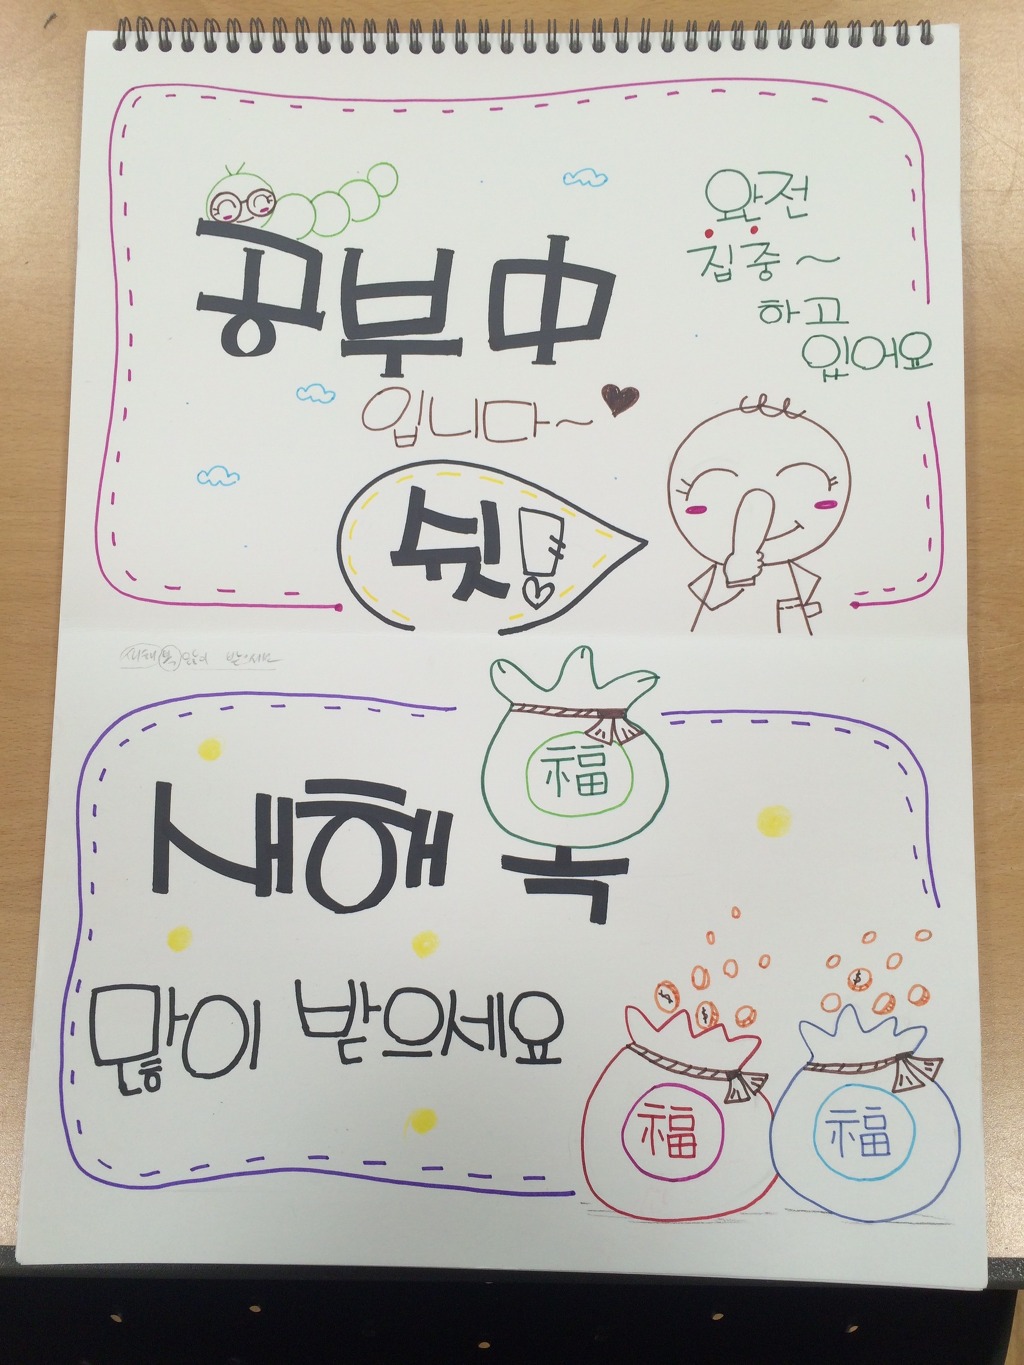 공부中
입니다~♥
완전
집중~
하고
있어요
쉿!
새해복 많이 받으세요
福
새해 복
많이 받으세요
$
$
$
福
福